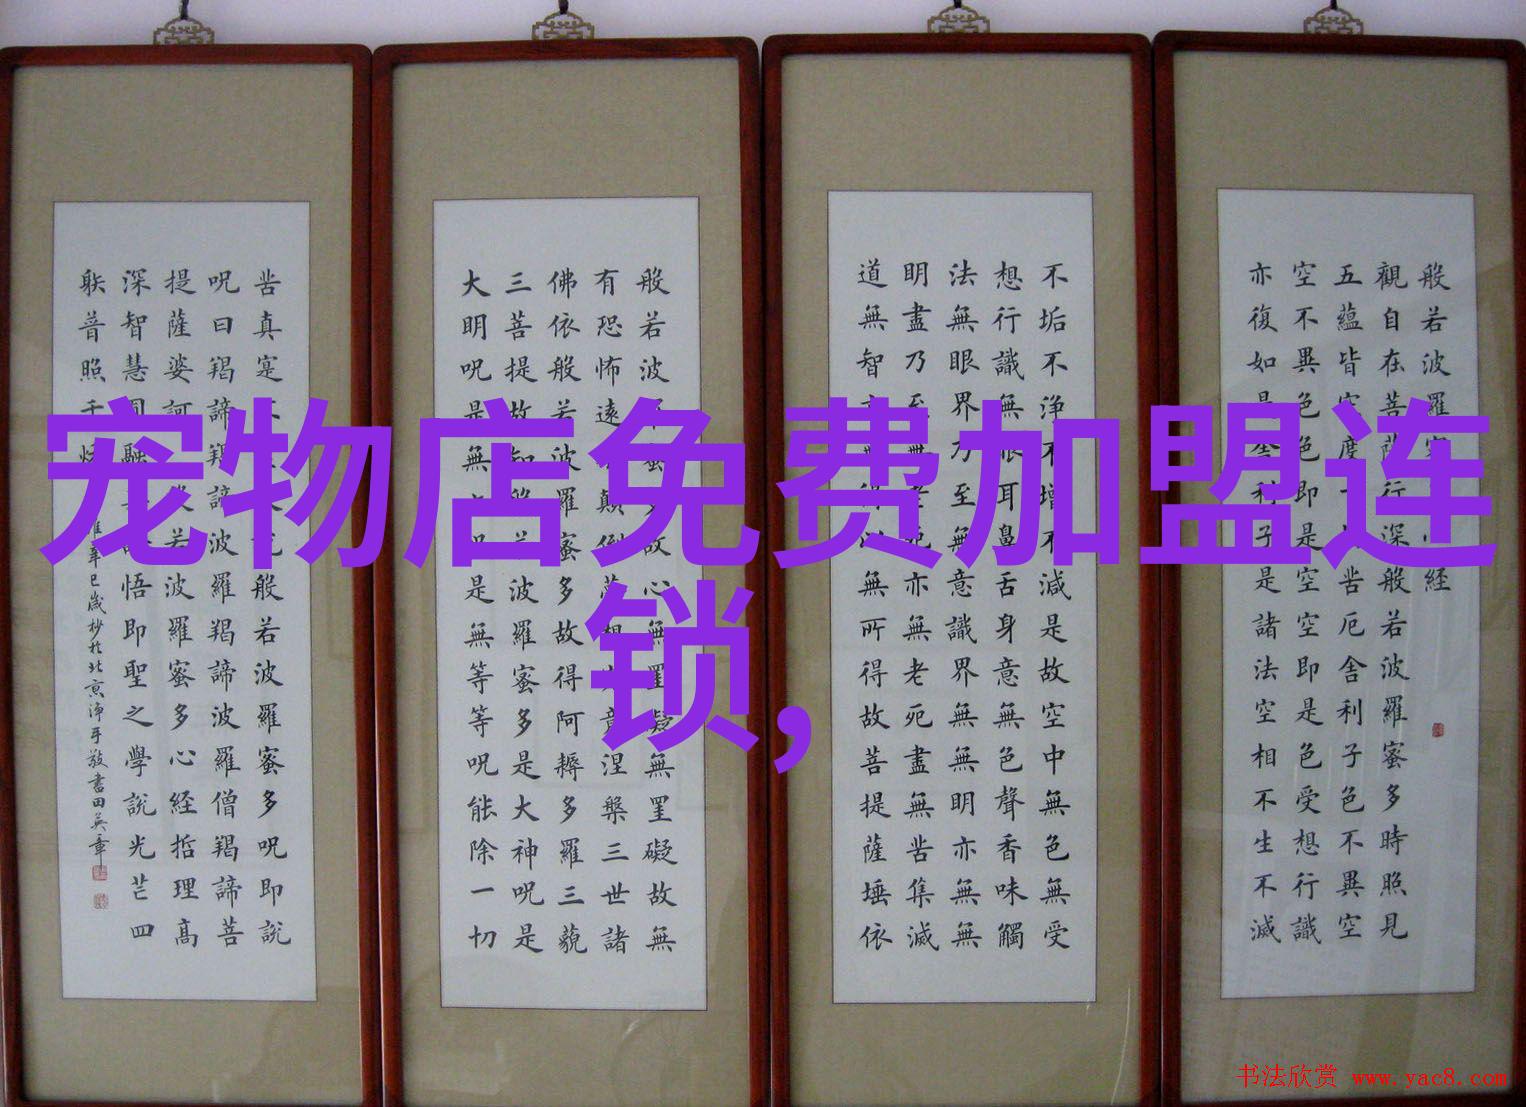 宠物店免费加盟连
锁,
般若波羅蜜心経
觀自在菩薩行深般若波羅蜜多時照見
五蘊皆空度一切苦厄舍利子色不異空
空不異色色即是空空即是色受想行識
亦復如是舍利子是諸法空相不生不滅
不垢不浄不增不減是故空中無色無受
想行識無眼耳鼻舌身意無色聲香味觸
法無眼界乃至無意識界無無明亦無無
明盡乃至無老死亦無老死盡無苦集滅
道無智亦無得以無所得故菩提薩埵依
般若波羅蜜多故心無罣礙無罣礙故無
有恐怖遠離顛倒夢想究竟涅槃三世諸
佛依般若波羅蜜多故得阿耨多羅三藐
三菩提故知般若波羅蜜多是大神呪是
大明呪是無上呪是無等等呪能除一切
苦真寔不般若波羅蜜多呪即説
呪曰羯諦羯諦波羅羯諦波羅僧羯諦菩
提薩婆訶般若波羅蜜多心経哲理高
深智慧圓融悟即聖之學説光芒四
躾普照千辛巳歲杪於北京淨手敬書田英章
书法欣赏 www.yac8.com